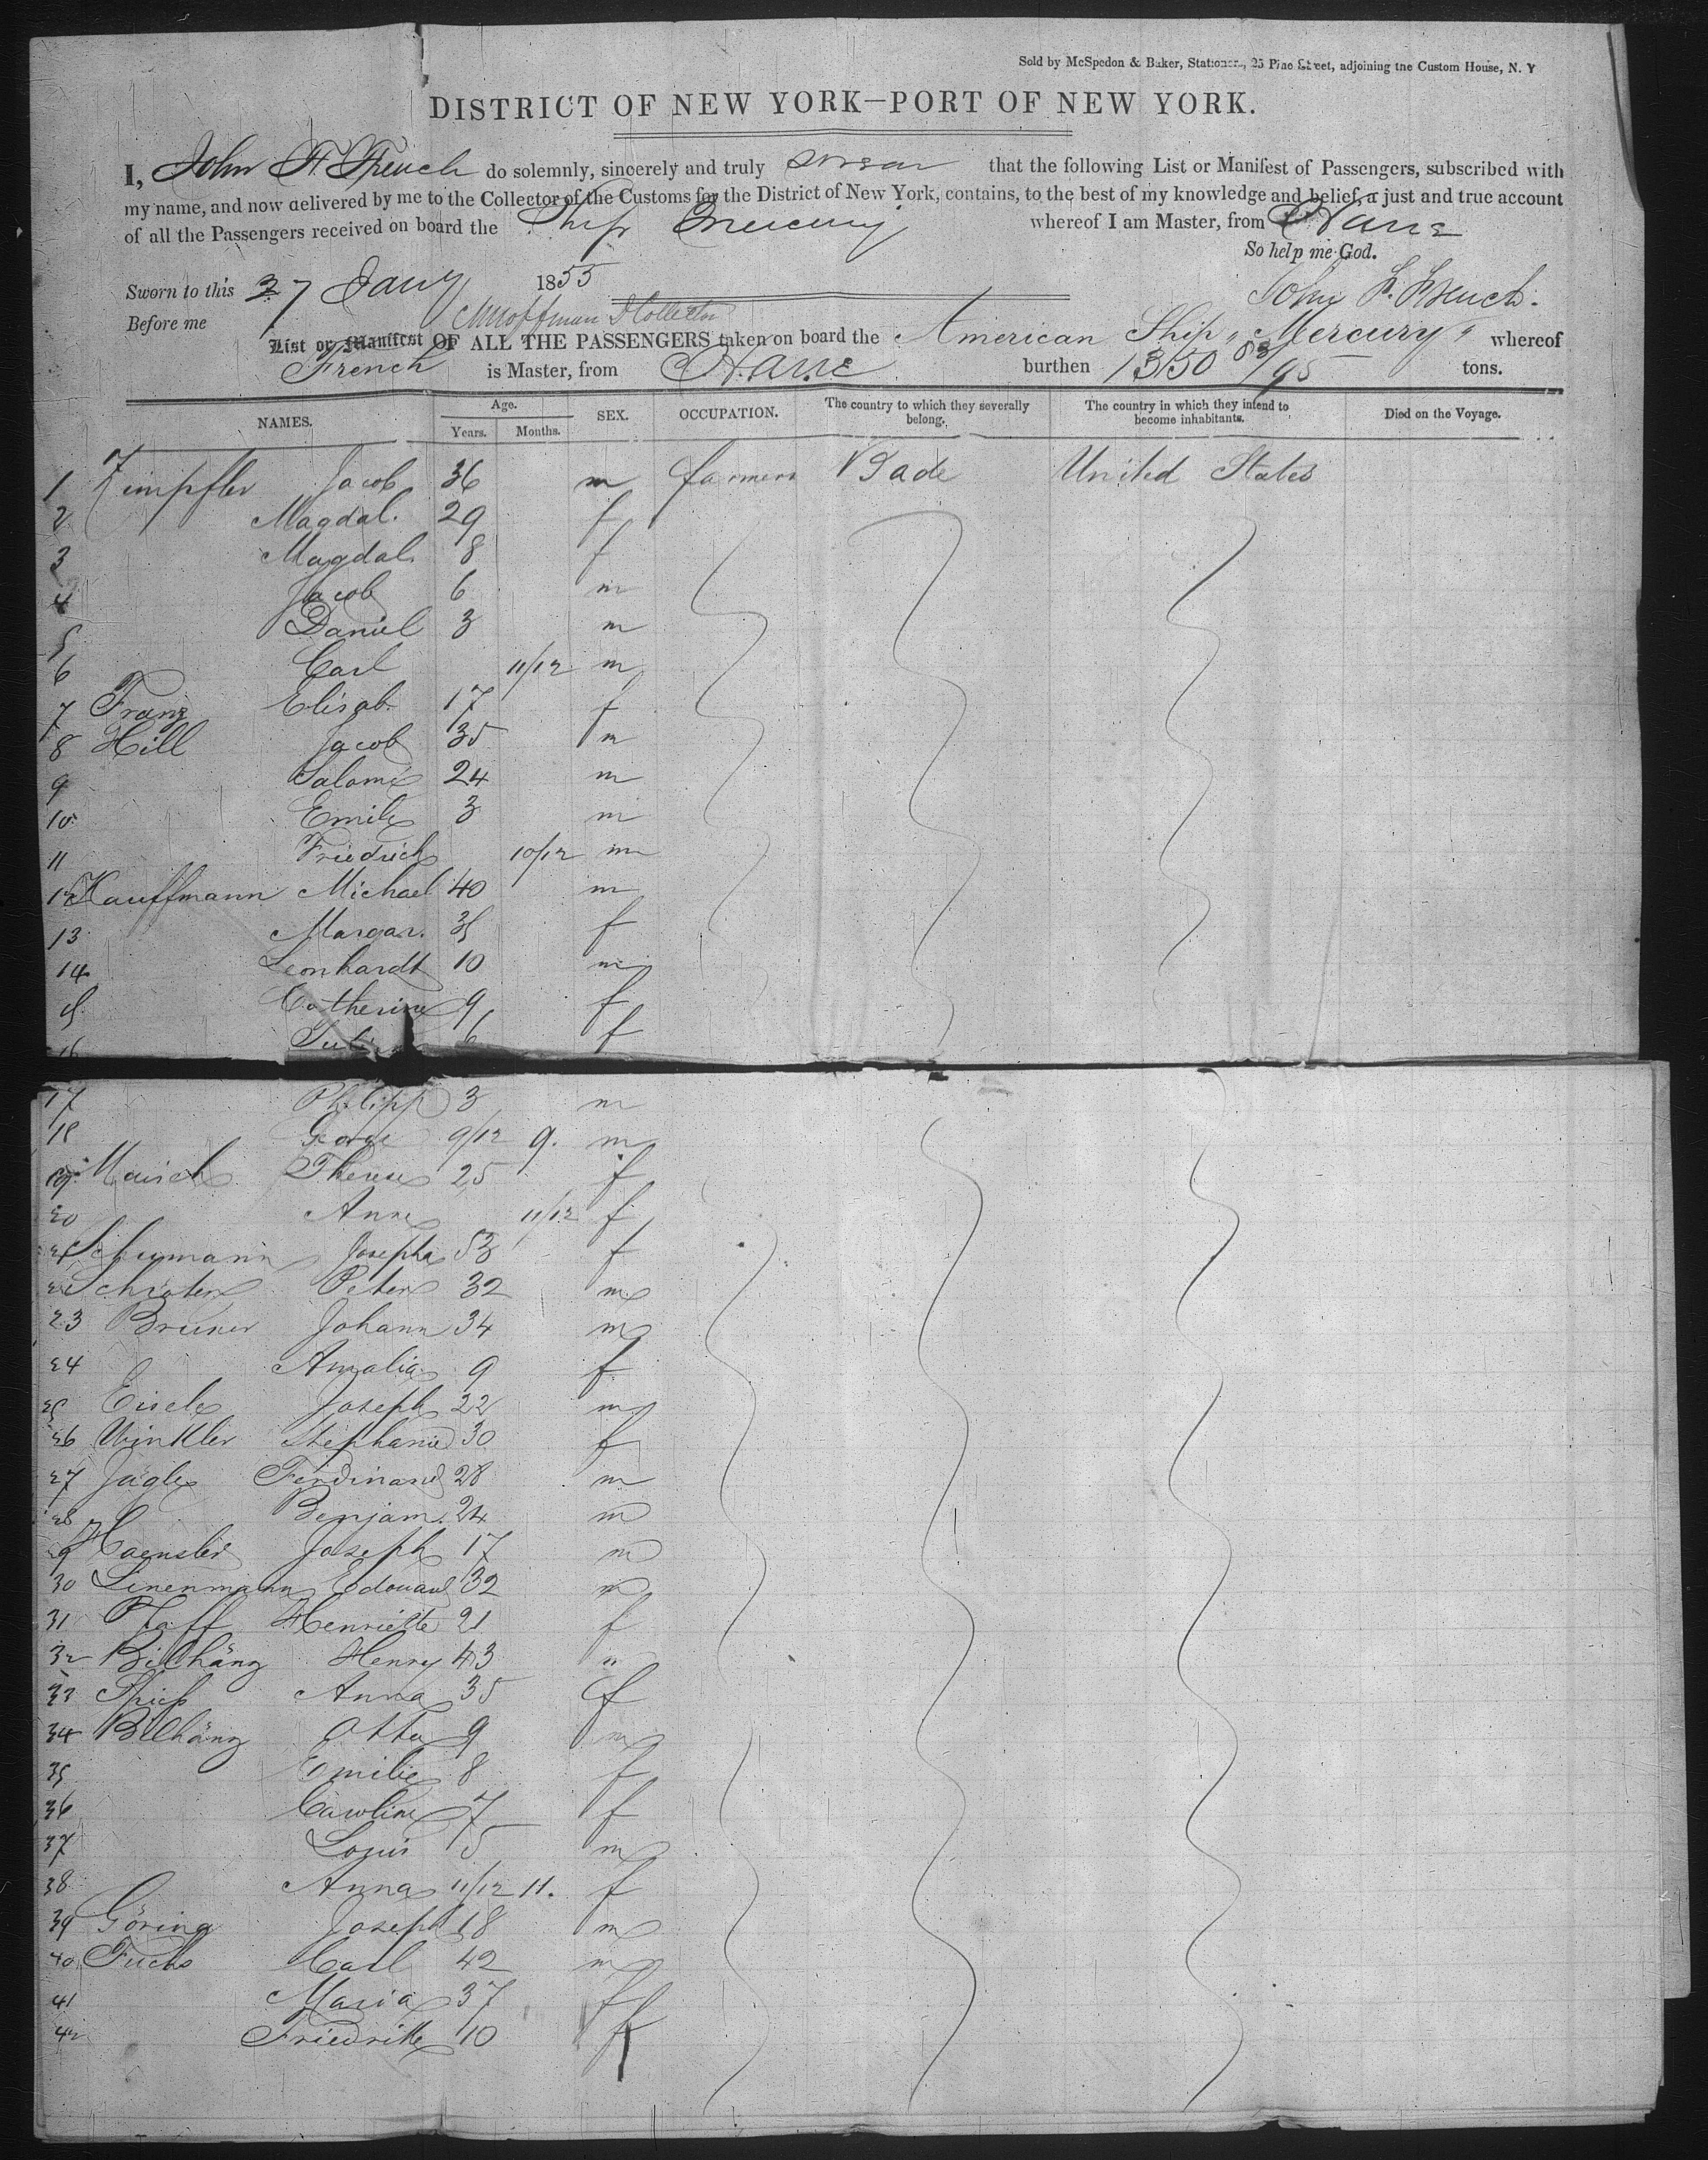 Sold by McSpedon & Baker, Stationers, 25 Pine Street, adjoining the Custom House, N. Y
DISTRICT OF NEW YORK—PORT OF NEW YORK.
I, John F. French do solemnly, sincerely and truly swear that the following List or Manifest of Passengers, subscribed with
my name, and now delivered by me to the Collector of the Customs for the District of New York, contains, to the best of my knowledge and belief, a just and true account
of all the Passengers received on board the Ship Mercury whereof I am Master, from Havre
So help me God.
Sworn to this 27 Jany 1855 John F. French.
Before me
List or Manifest OF ALL THE PASSENGERS taken on board the American Ship "Mercury" whereof
French is Master, from Havre burthen 1350 83/95 tons.
NAMES. Age. Years. Months. SEX. OCCUPATION. The country to which they severally belong. The country in which they intend to become inhabitants. Died on the Voyage.
1 Zimpfler Jacob 36 m farmers Bade United States
2 Magdal. 29 f
3 Magdal. 8 f
4 Jacob 6 m
5 Daniel 3 m
6 Carl 11/12 m
7 Franz Elisab. 17 f
8 Hill Jacob 35 m
9 Salome 24 m
10 Emile 3 m
11 Friedrich 10/12 m
12 Kauffmann Michael 40 m
13 Margar. 35 f
14 Leonhardt 10 m
15 Catherine 9 f
16 6 f
17 Philipp 3 m
18 George 9/12 9. m
19 Therese 25 f
20 Anne 11/12 f
21 Schumann Josepha 53 f
22 Peter 32 m
23 Bruner Johann 34 m
24 Amalia 9 f
25 Eisele Joseph 22 m
26 Winkler Stephanie 30 f
27 Jägle Ferdinand 28 m
28 Benjam. 24 m
29 Haensler Joseph 17 m
30 Linenmann Edouard 32 m
31 Pfaff Henriette 21 f
32 Bilhänz Henry 43 m
33 Spiess Anna 35 f
34 Bilhänz Otto 9 m
35 Emilie 8 f
36 Caroline 7 f
37 Louis 5 m
38 Anna 11/12 11. f
39 Göring Joseph 18 m
40 Fuchs Carl 42 m
41 Maria 37 f
42 Friedrike 10 f